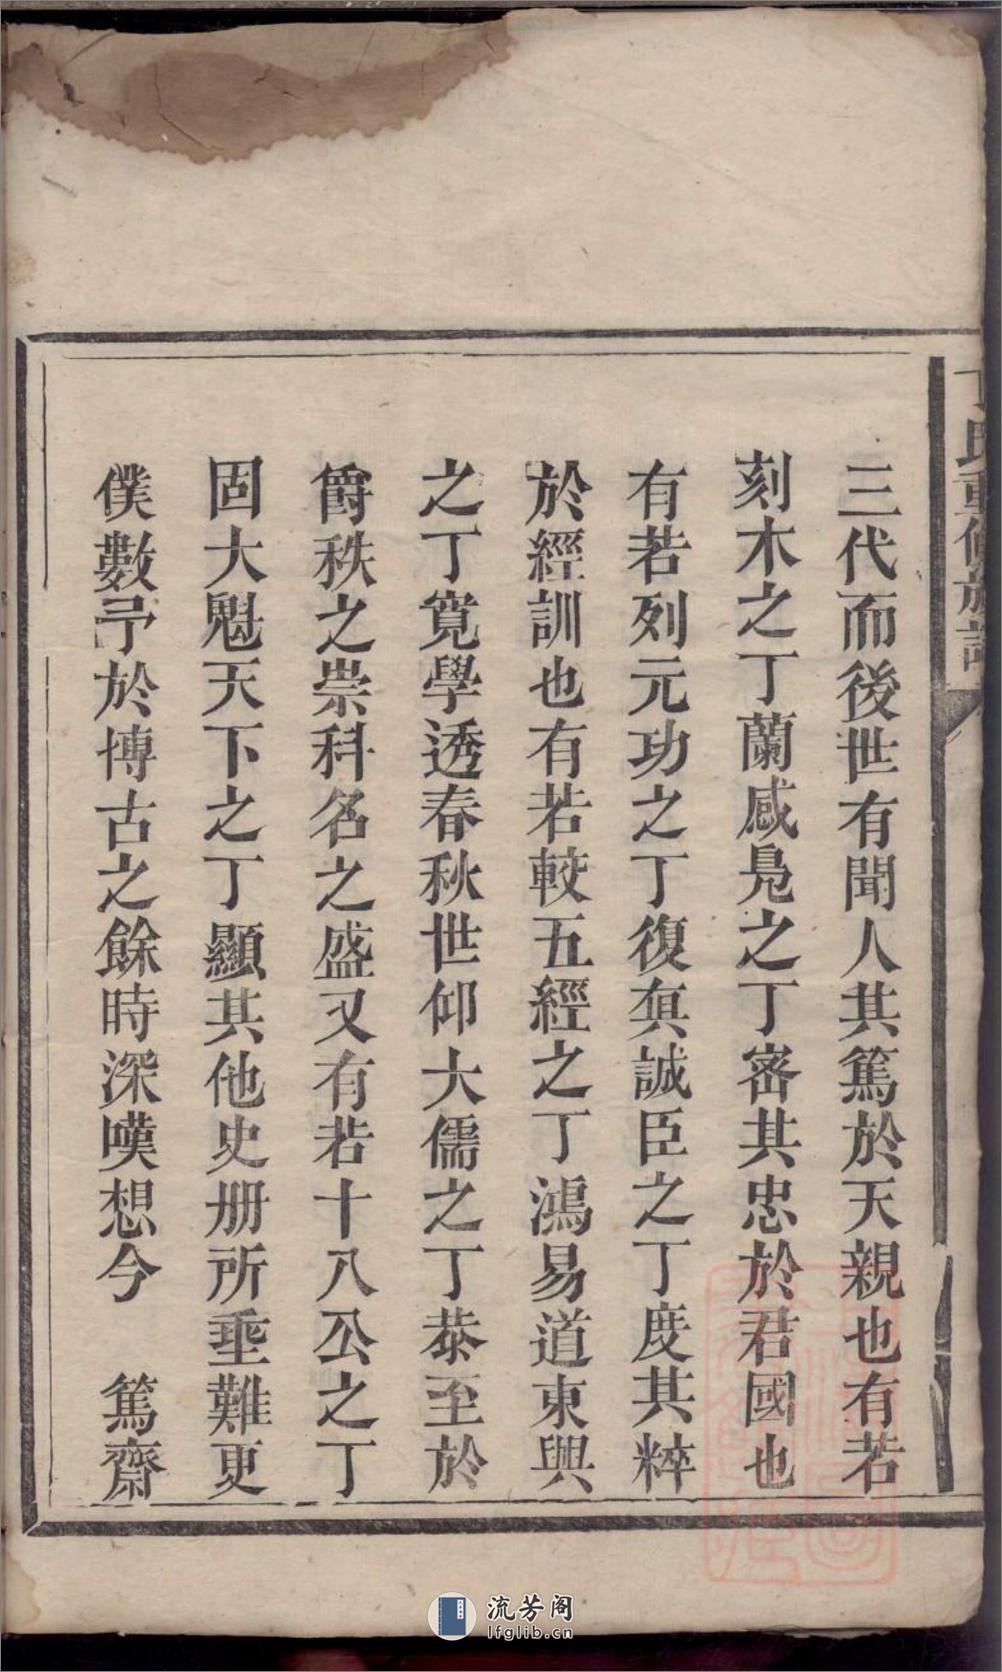 丁氏重修族譜
三代而後世有聞人其篤於天親也有若
刻木之丁蘭感鳧之丁密其忠於君國也
有若列元功之丁復真誠臣之丁度其粹
於經訓也有若較五經之丁鴻易道東與
之丁寬學透春秋世仰大儒之丁恭至於
爵秩之崇科名之盛又有若十八公之丁
固大魁天下之丁顯其他史册所垂難更
僕數予於博古之餘時深嘆想今　篤齋
流芳阁
lfglib.cn